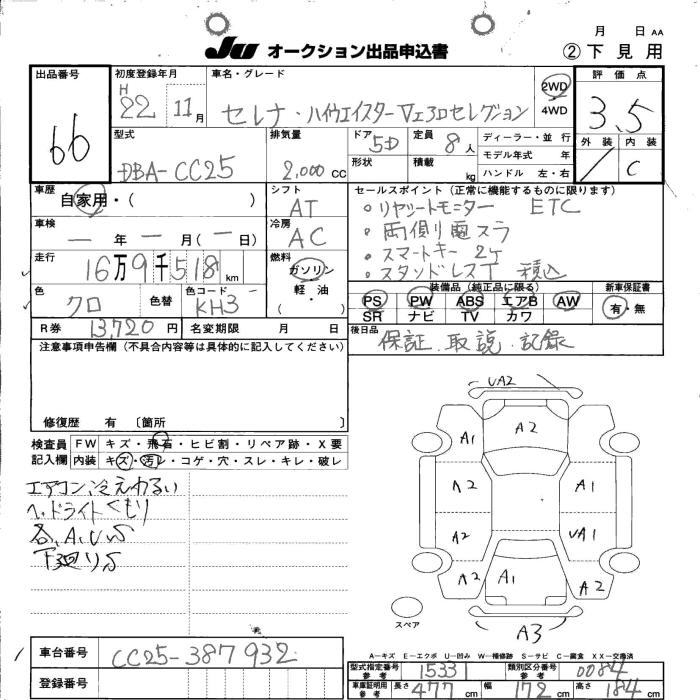 月 日 AA
JU オークション出品申込書 ②下見用
出品番号 初度登録年月 車名・グレード 評価点
66 H 22 11月 セレナ・ハイウエイスターVエアロセレクション 2WD 4WD 3.5
型式 排気量 ドア 5D 定員 8人 ディーラー・並行 外装 内装
DBA-CC25 2,000cc 形状 積載 kg モデル年式 年 C
ハンドル 左・右
車歴 シフト セールスポイント(正常に機能するものに限ります)
自家用・( ) AT ○リヤシートモニター ETC
車検 冷房 ○両側電スラ
ー年ー月(ー日) AC ○スマートキー2ケ
走行 燃料 ○スタッドレスT 積込
16万9千518km ガソリン 軽・油 ( )
装備品(純正品に限る) 新車保証書
色 色替 色コード PS PW ABS エアB AW 有・無
クロ KH3 SR ナビ TV カワ
R券 13,720円 名変期限 月 日 後日品
保証.取説.記録
注意事項申告欄(不具合内容等は具体的に記入してください)
修復歴 有 〔箇所 〕
検査員 FW キズ・飛石・ヒビ割・リペア跡・X要
記入欄 内装 キズ・汚レ・コゲ・穴・スレ・キレ・破レ
エアコン、冷えわるい
ヘッドライトくもり
各、A.U.S
下廻りS
UA2
A1 A2
A2 A1
A2 UA1
A2 A1 A2
スペア
A3
A-キズ E-エクボ U-凹み W-補修跡 S-サビ C-腐食 XX-交換済
車台番号 CC25-387932
型式指定番号 参考 1533 類別区分番号 参考 0084
登録番号
車庫証明用 参考 長さ 477cm 幅 172cm 高さ 184cm